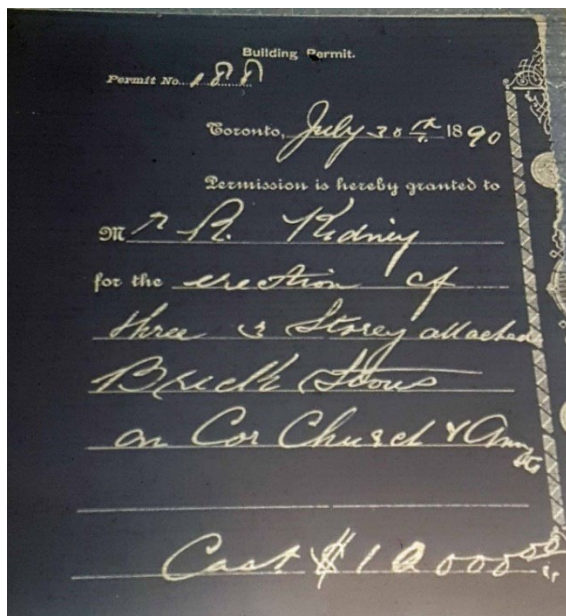 Building Permit.
Permit No. 188
Toronto, July 30th 1890
Permission is hereby granted to
Mr R. Kidney
for the erection of
three 3 Storey attached
Brick Stores
on Cor Church & Ann Sts
Cost $10000.00